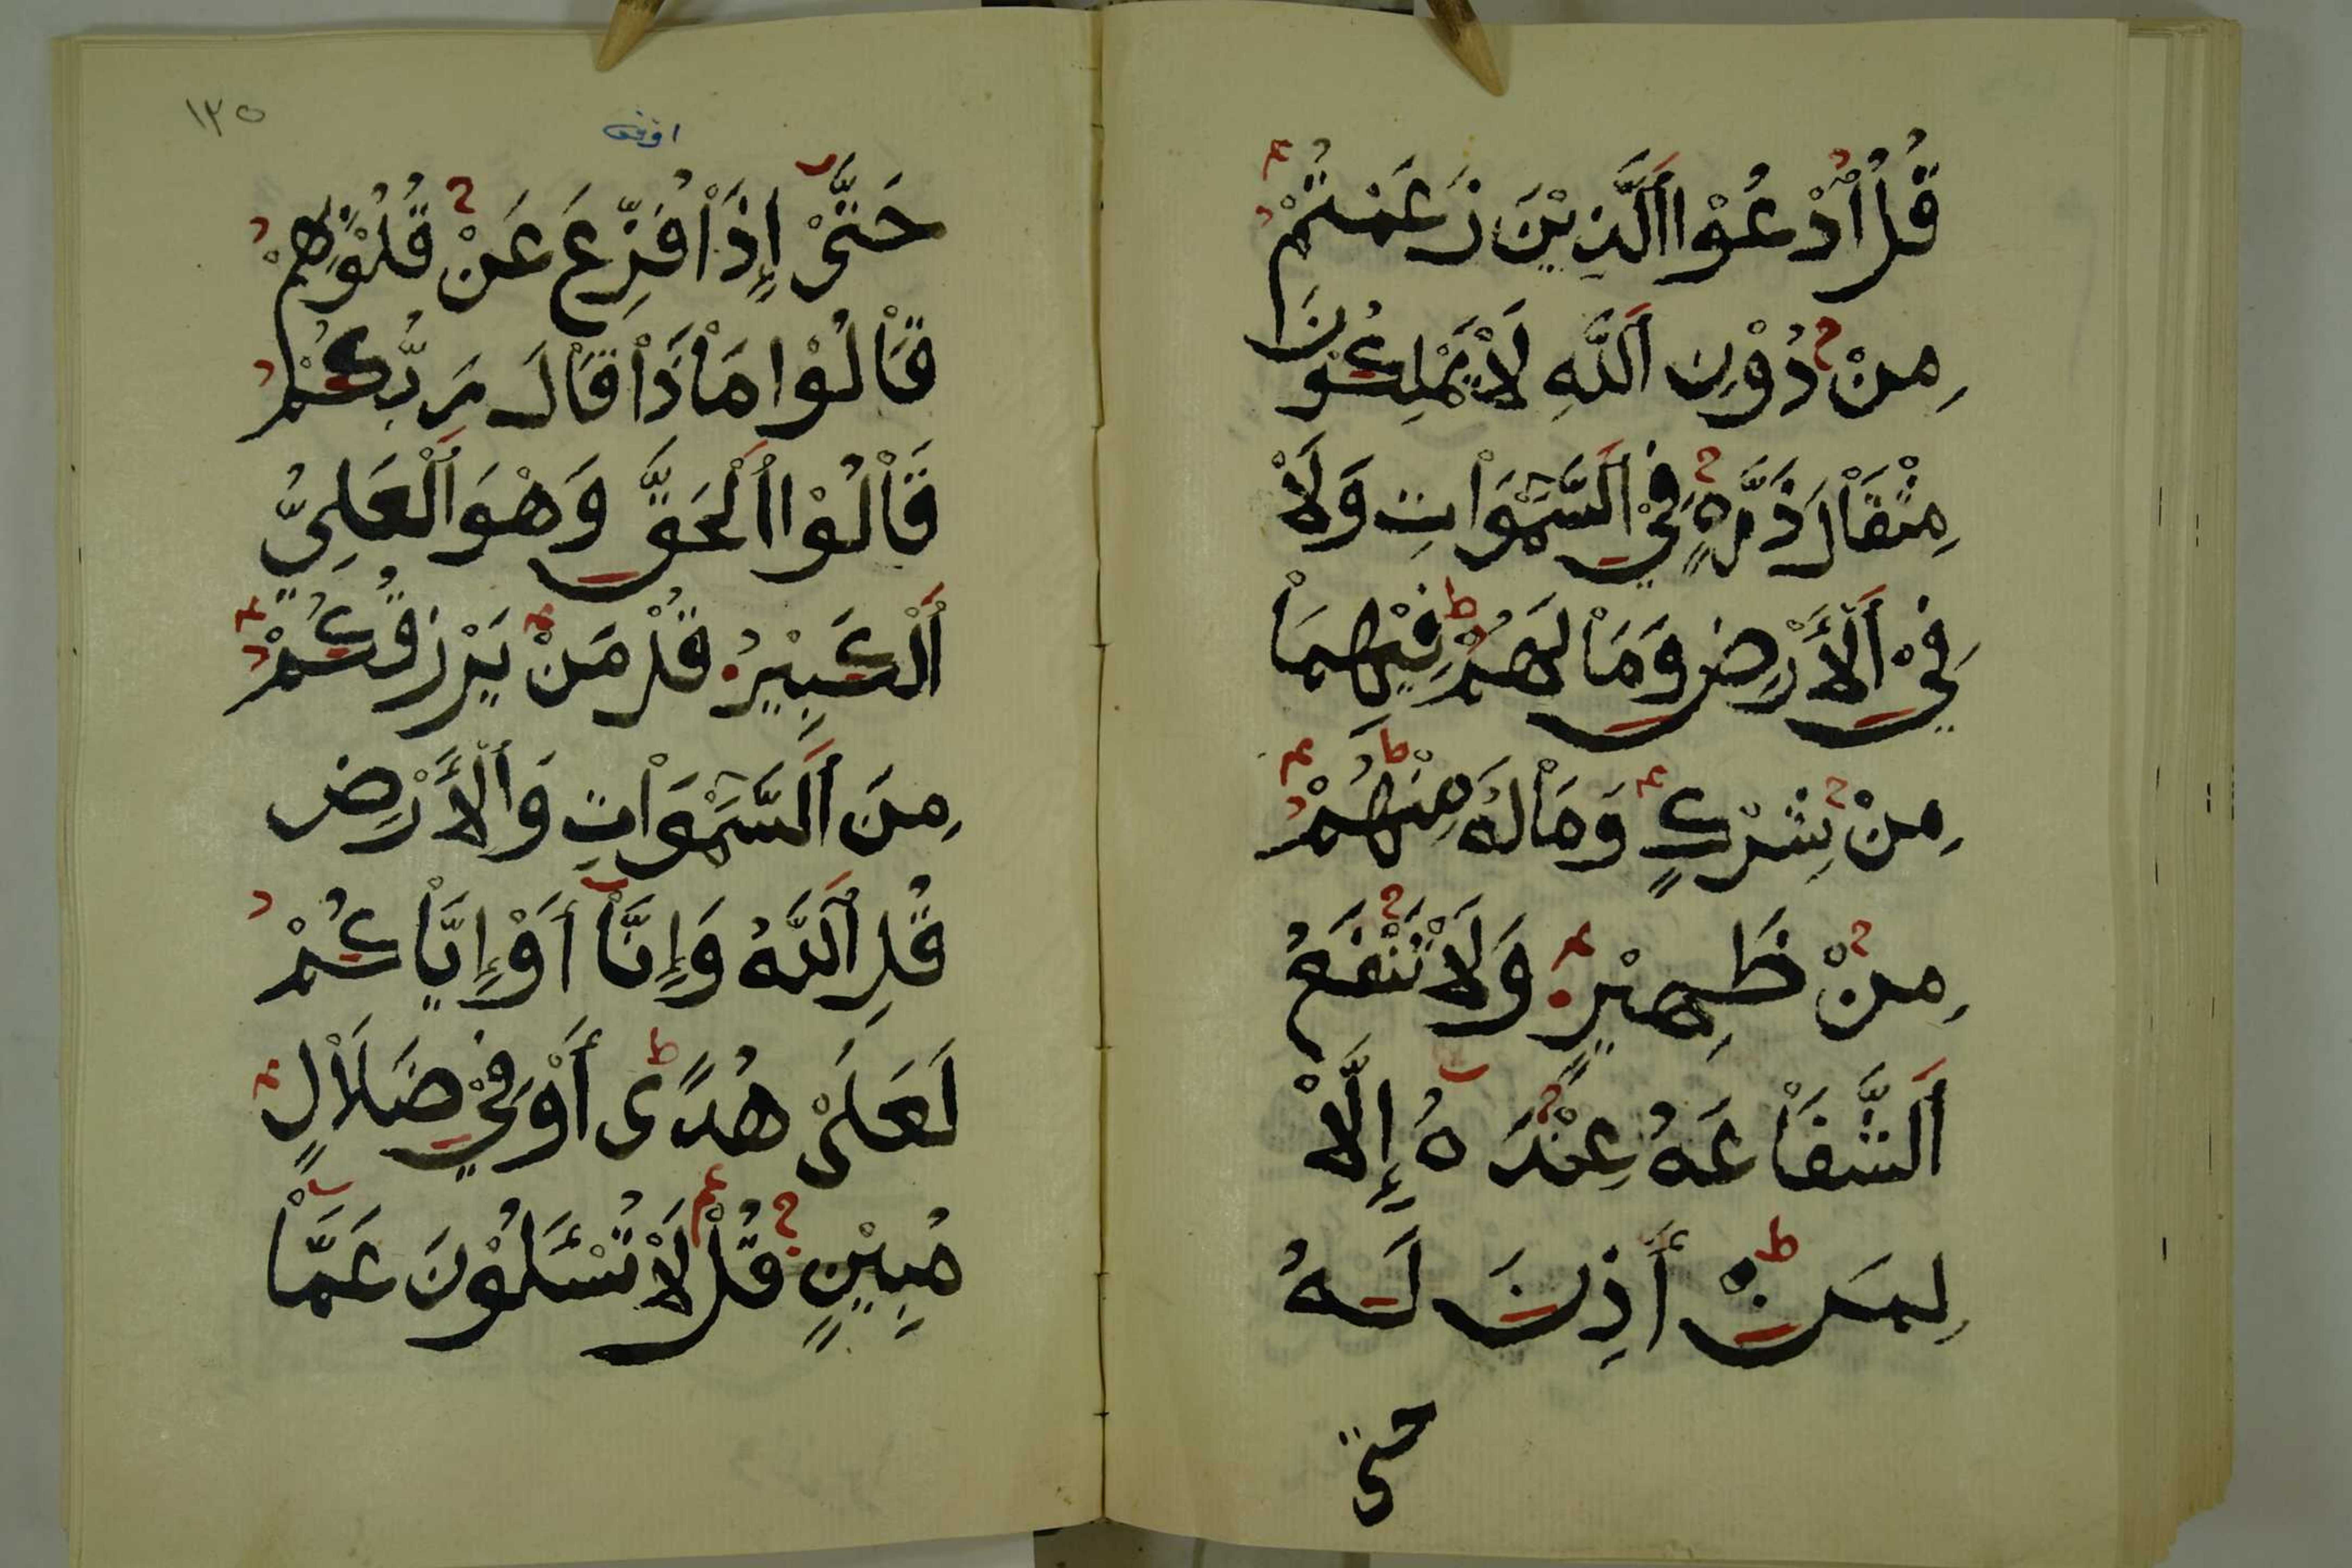 قُلُ اُدْعُوْا اَلَّذِيْنَ زَعَمْتُمْ
مِنْ دُوْنِ اَللَّهِ لَاْ يَمْلِكُونَ
مِثْقَاْلَ ذَرَّهٍ فِيْ اَلسَّمَوَاْتِ وَلَاْ
فِيْ اَلْأَرْضِ وَمَاْ لَهُمْ فِيْهِمَاْ
مِنْ شِرْكٍ وَمَاْ لَهُ مِنْهُمْ
مِنْ ظَهِيْرٍ وَلَاْ تَنْفَعُ
اَلشَّفَاْعَهُ عِنْدَهُ إِلَّاْ
لِمَنْ أَذِنَ لَهُ
حتى
١٣٥
حَتَّىْ إِذَاْ فُزِّعَ عَنْ قُلُوْبِهِمْ
قَاْلُوْا مَاْذَاْ قَاْلَ رَبُّكُمْ
قَاْلُوْا اُلْحَقَّ وَهْوَ اَلْعَلِيُّ
اَلْكَبِيْرُ قُلْ مَنْ يَرْزُقُكُمْ
مِنَ اَلسَّمَوَاْتِ وَاَلْأَرْضِ
قُلِ اَللَّهُ وَإِنَّاْ أَوْ إِيَّاْكُمْ
لَعَلَىْ هُدًى أَوْ فِيْ ضَلَاْلٍ
مُبِيْنٍ قُلْ لَاْ تُسْـَٔلُوْنَ عَمَّاْ